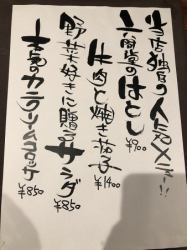 当店独自の人気メニュー!!
六角堂のはとし ¥900
牛肉と焼き茄子 ¥1400
野菜好きに贈るサラダ ¥850
本気のカニクリームコロッケ ¥850